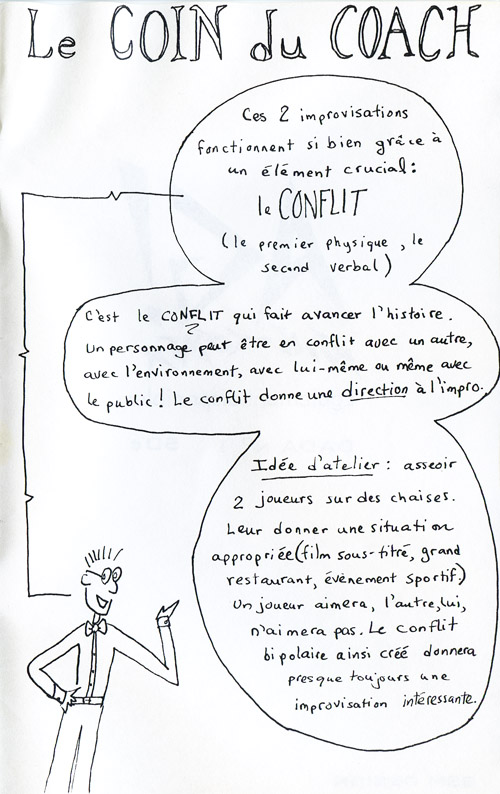 Le COIN du COACH
Ces 2 improvisations
fonctionnent si bien grâce à
un élément crucial :
le CONFLIT
(le premier physique, le
second verbal)
C'est le CONFLIT qui fait avancer l'histoire.
Un personnage peut être en conflit avec un autre,
avec l'environnement, avec lui-même ou même avec
le public! Le conflit donne une direction à l'impro.
Idée d'atelier : asseoir
2 joueurs sur des chaises.
Leur donner une situation
appropriée (film sous-titré, grand
restaurant, évènement sportif)
Un joueur aimera, l'autre, lui,
n'aimera pas. Le conflit
bipolaire ainsi créé donnera
presque toujours une
improvisation intéressante.